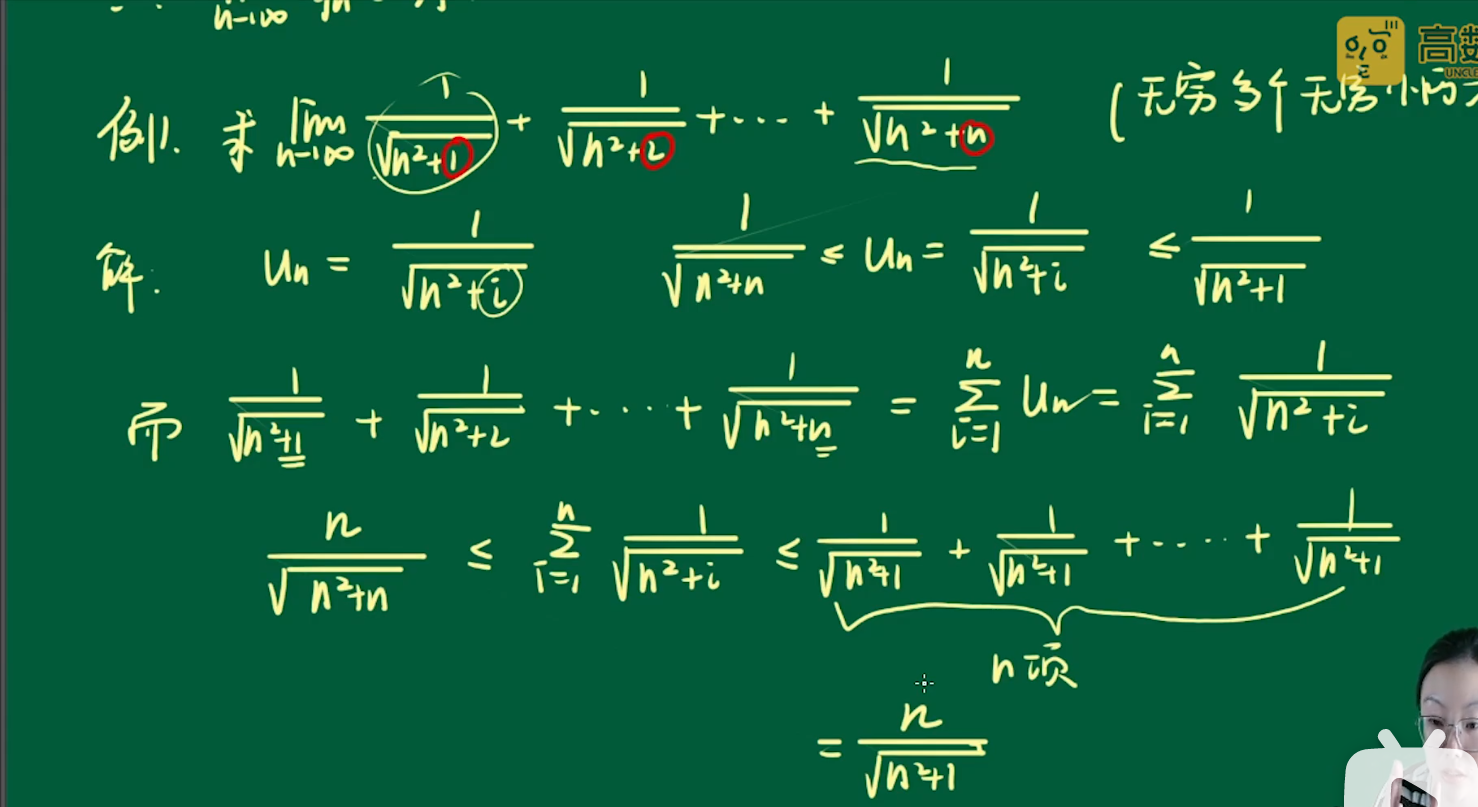 n→∞
高数
UNCLE
例1. 求 lim n→∞ 1/√(n²+1) + 1/√(n²+2) + ··· + 1/√(n²+n) (无穷多个无穷小
解: uₙ = 1/√(n²+i) 1/√(n²+n) ≤ uₙ = 1/√(n²+i) ≤ 1/√(n²+1)
而 1/√(n²+1) + 1/√(n²+2) + ···· + 1/√(n²+n) = ∑_{i=1}^{n} uₙ = ∑_{i=1}^{n} 1/√(n²+i)
n/√(n²+n) ≤ ∑_{i=1}^{n} 1/√(n²+i) ≤ 1/√(n²+1) + 1/√(n²+1) + ····· + 1/√(n²+1)
n项
= n/√(n²+1)